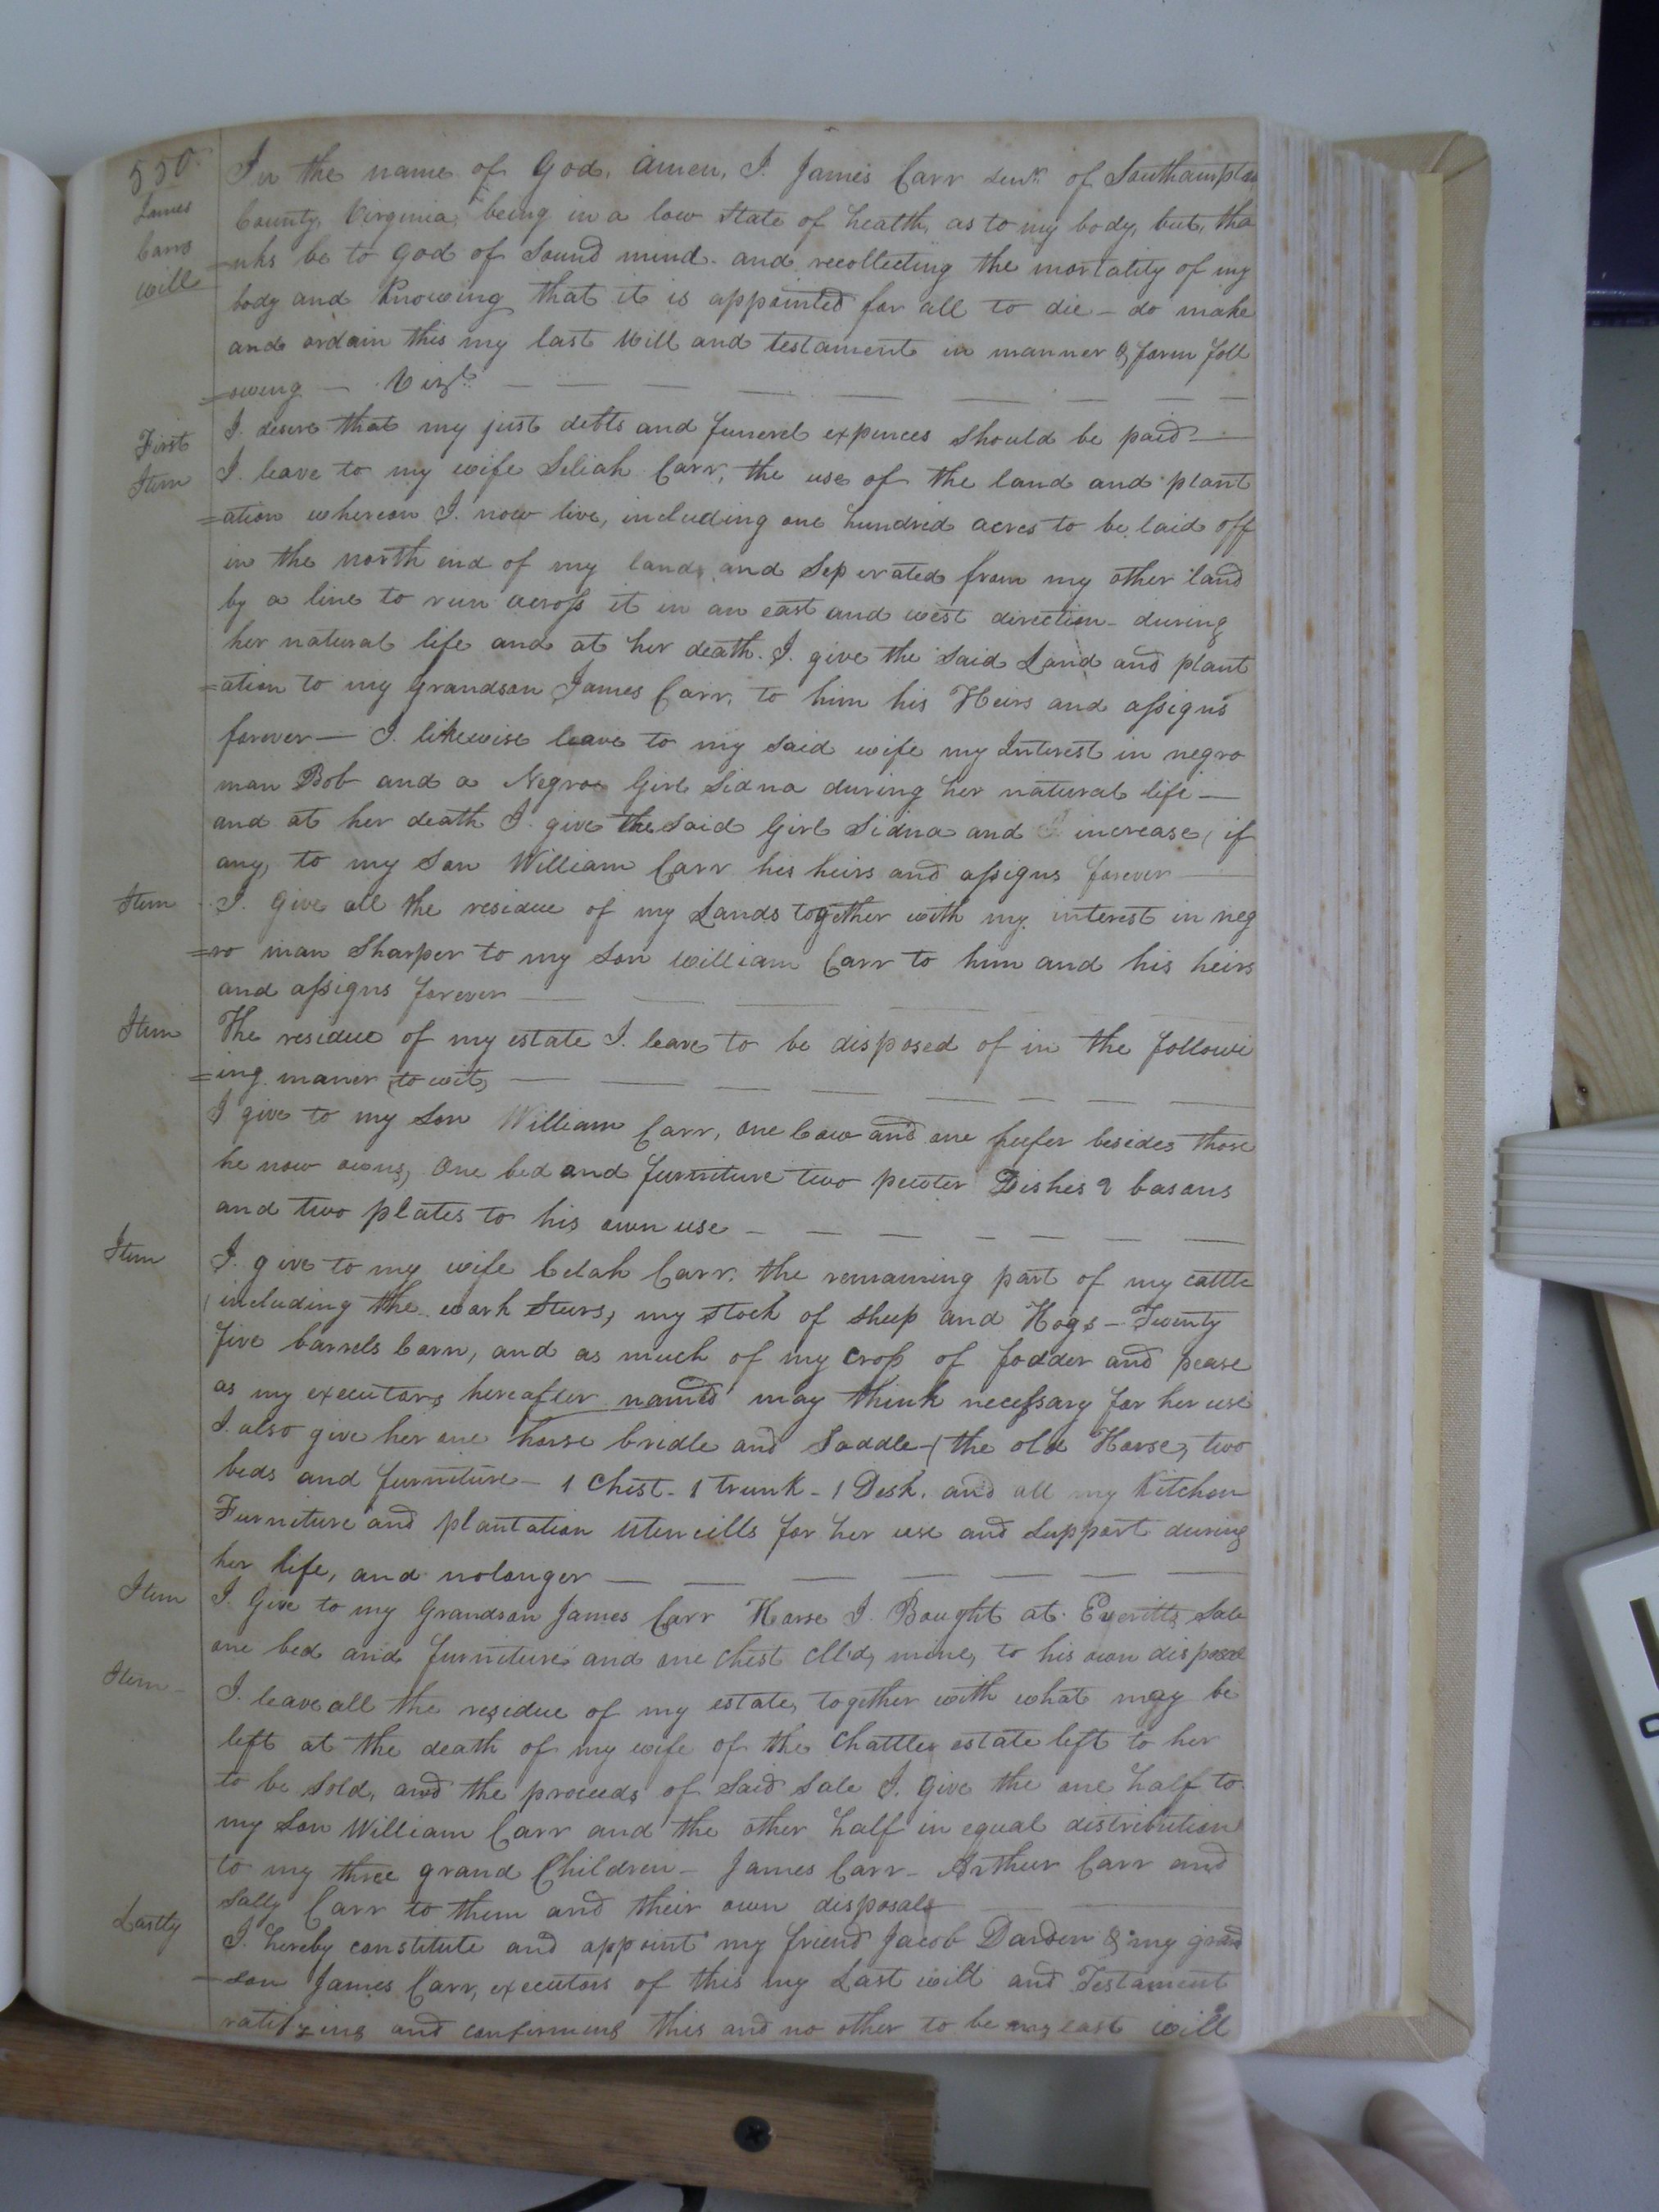 550
James
Carrs
will
In the name of God, Amen, I. James Carr Senr. of Southampton
County, Virginia, being in a low state of health, as to my body, but, tha
=nks be to God of sound mind - and recollecting the mortality of my
body and knowing that it is appointed for all to die - do make
and ordain this my last Will and testament in manner & form foll
=owing - Vizt. - - - - - - - -
First
I. desire that my just debts and funerel expences should be paid -
Item
I. leave to my wife Seliah Carr, the use of the land and plant
=ation whereon I. now live, including one hundred acres to be laid off
in the north end of my land, and Seperated from my other land
by a line to run across it in an east and west direction - during
her natural life and at her death. I. give the said Land and plant
=ation to my grandson James Carr, to him his Heirs and assigns
forever - I. likewise leave to my said wife my Interest in negro
man Bob and a Negroe Girl Sidna during her natural life -
and at her death I. give the said Girl Sidna and increase, if
any, to my Son William Carr his heirs and assigns forever
Item
I. Give all the residue of my Lands together with my interest in neg
=ro man Sharper to my son William Carr to him and his heirs
and assigns forever - - - -
Item
The residue of my estate I. leave to be disposed of in the followi
=ing maner (to wit) - - - - - - -
I give to my Son William Carr, one Cow and one heifer besides those
he now owns, One bed and furniture two pewter Dishes 2 basons
and two plates to his own use - - - - - - -
Item
I. give to my wife Celah Carr, the remaining part of my cattle
(including the work Steers, my stock of sheep and Hogs - Twenty
five barrels Corn, and as much of my crop of fodder and pease
as my executors hereafter named may think necessary for her use
I. also give her one horse bridle and Saddle - (the old Horse, two
beds and furniture - 1 Chest - 1 trunk - 1 Desk, and all my Kitchen
Furniture and plantation utencills for her use and Support during
her life, and nolonger - - - - - -
Item
I. Give to my Grandson James Carr Horse I. Bought at Everitts Sale
one bed and furniture and one chest Cll'd, mine, to his own disposal
Item -
I. leave all the residue of my estate, together with what may be
left at the death of my wife of the Chattles estate left to her
to be sold, and the proceeds of said sale I. Give the one half to
my Son William Carr and the other half in equal distribution
to my three grand Children - James Carr - Arthur Carr and
Sally Carr to them and their own disposals
Lastly
I. hereby constitute and appoint my friend Jacob Darden & my grand
=son James Carr, executors of this my Last will and Testament
ratifying and confirming this and no other to be my last will